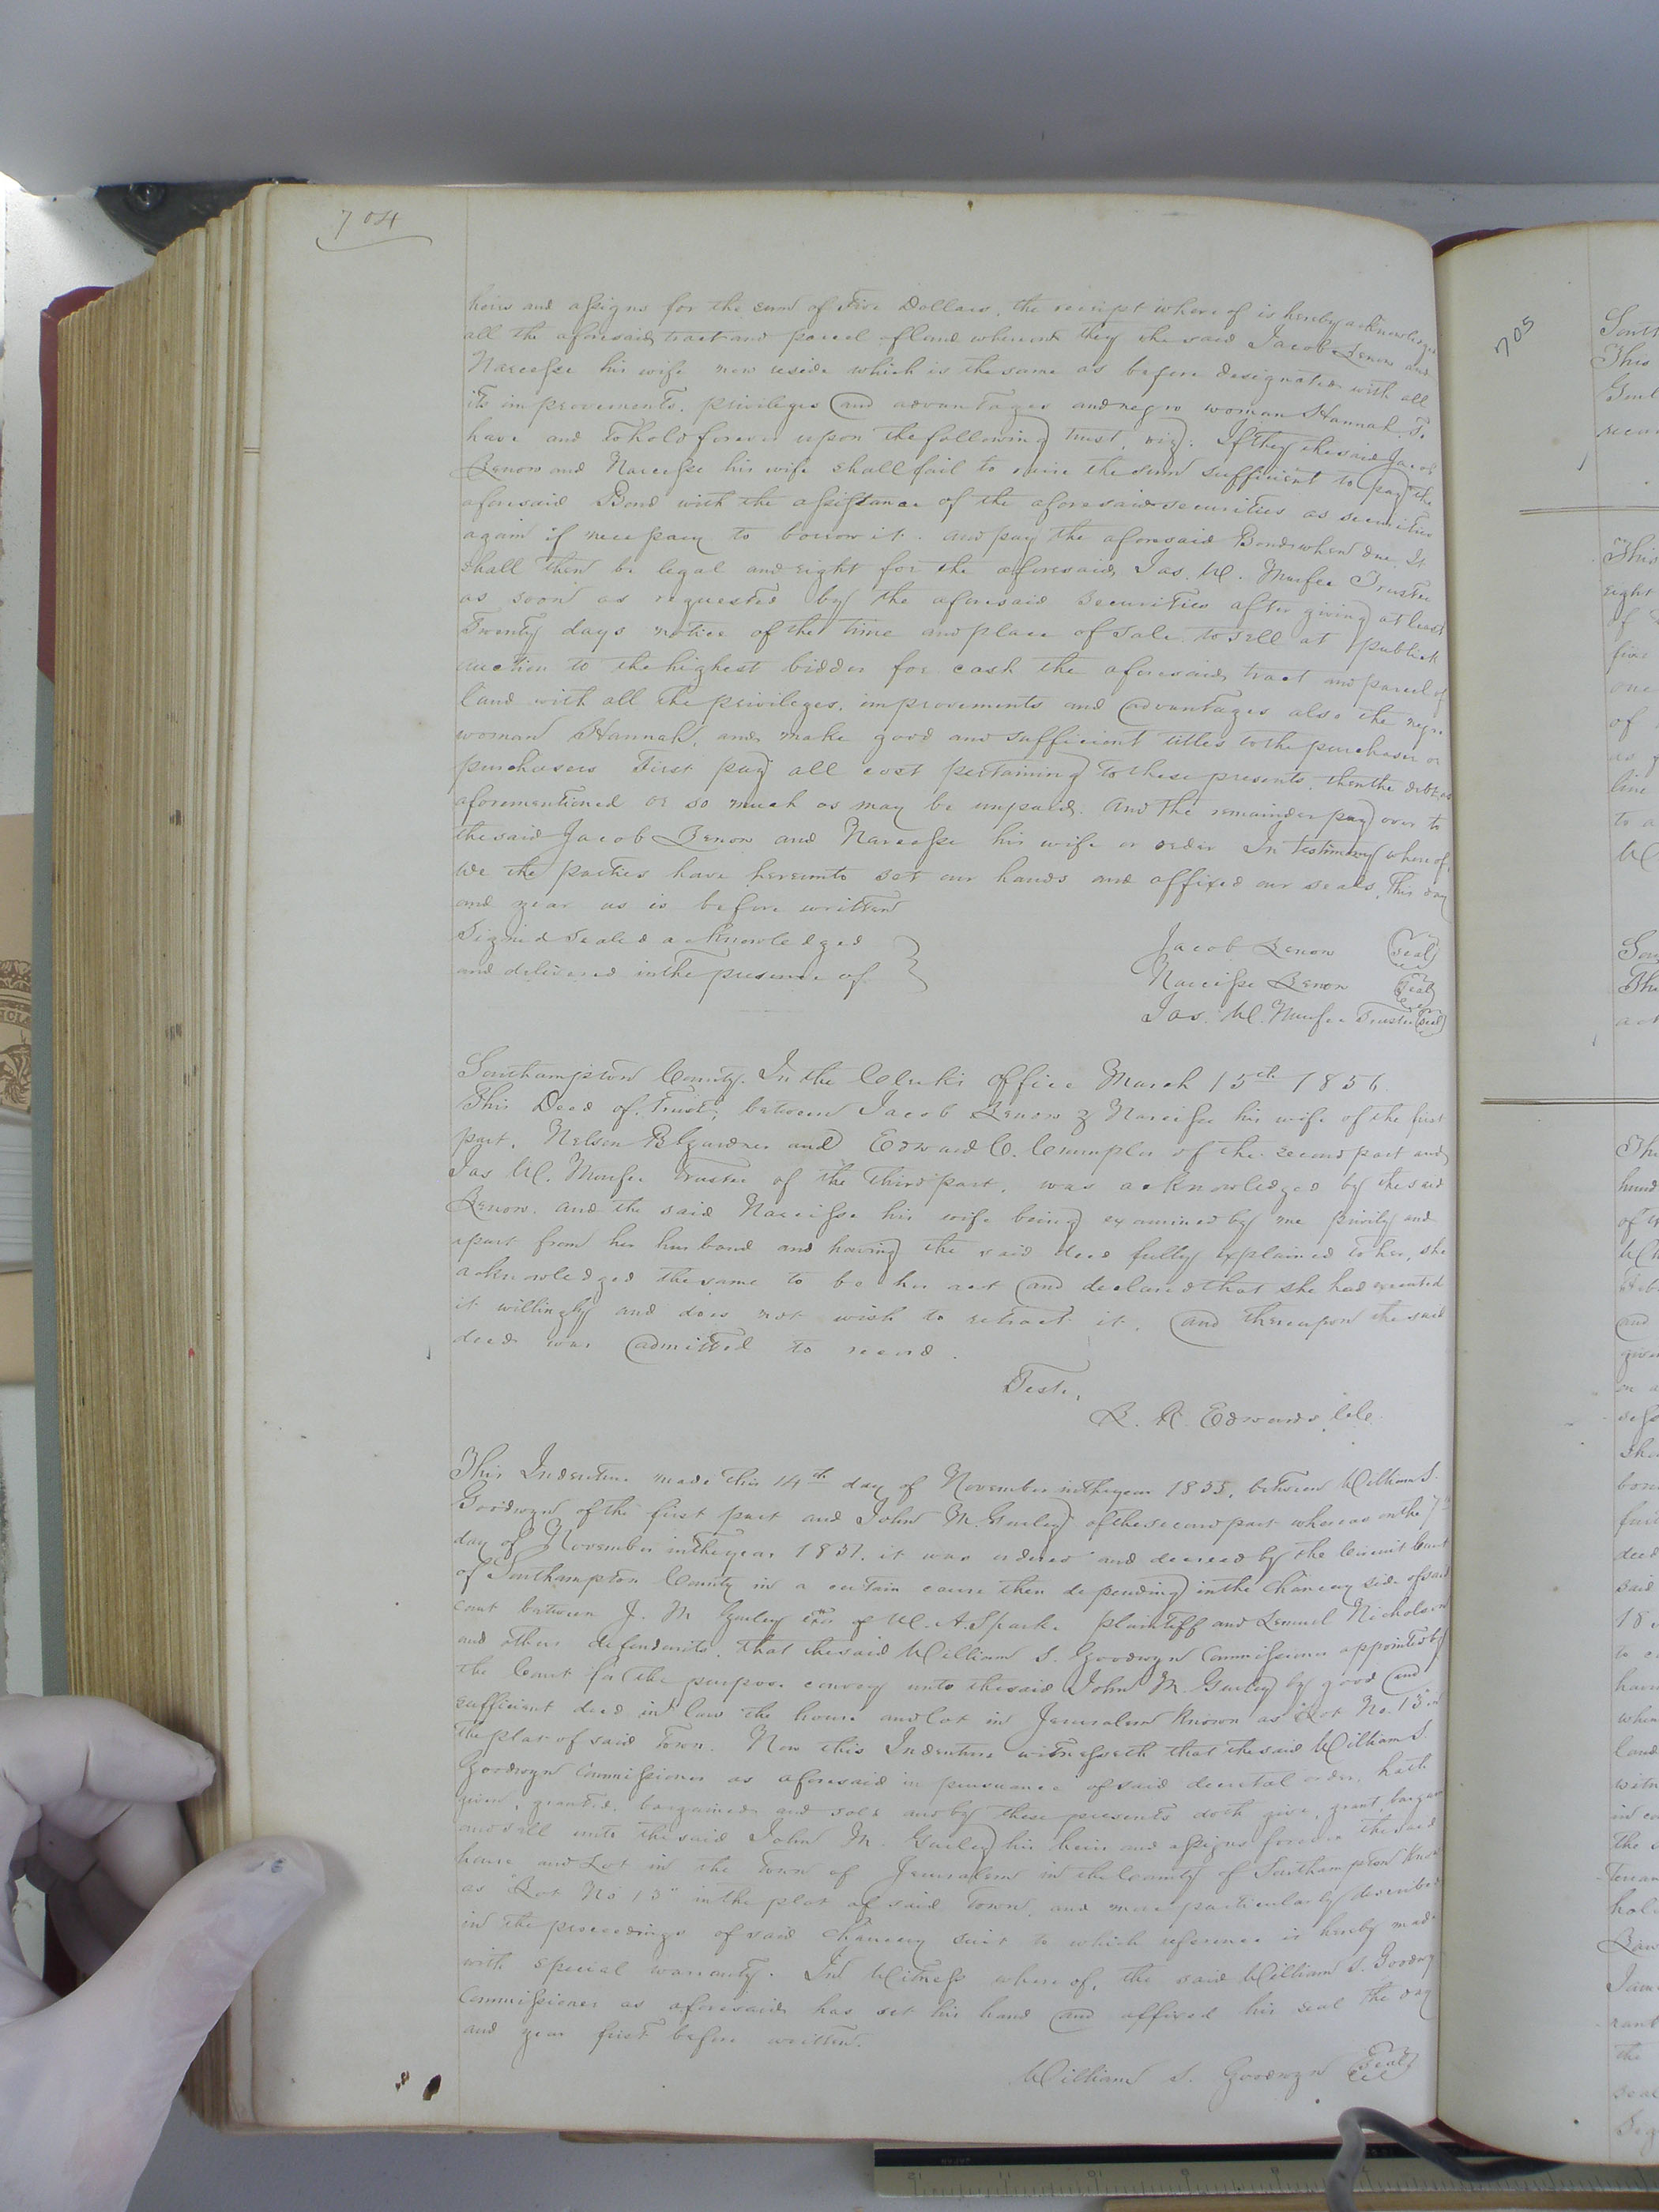 704
heirs and assigns for the sum of Five Dollars, the receipt where of is hereby acknowledged
all the aforesaid tract and parcel of land whereon they the said Jacob Lenow and
Narcisse his wife now reside which is the same as before designated with all
its improvements, privileges and advantages and negro woman Hannah. To
have and to hold forever upon the following trust, viz: If they the said Jacob
Lenow and Narcisse his wife shall fail to raise the sum sufficient to pay the
aforesaid Bond with the assistance of the aforesaid securities as securities
again if necessary to borrow it. and pay the aforesaid Bond when due, It
shall then be legal and right for the aforesaid Jas. W. Murfee Trustee
as soon as requested by the aforesaid Securities after giving at least
Twenty days notice of the time and place of sale to sell at publick
auction to the highest bidder for cash the aforesaid tract and parcel of
land with all the privileges, improvements and advantages also the negro
woman Hannah, and make good and sufficient titles to the purchaser or
purchasers First pay all cost pertaining to these presents, then the debt as
aforementioned or so much as may be unpaid. and the remainder pay over to
the said Jacob Lenow and Narcisse his wife or order In testimony where of,
We the parties have hereunto set our hands and affixed our seals, This day
and year as is before written
Signed Sealed acknowledged
and delivered in the presence of
Jacob Lenow Seal
Narcisse Lenow Seal
Jas. W. Murfee Trustee Seal
Southampton County. In the Clerk's office March 15th 1856.
This Deed of Trust, between Jacob Lenow & Narcisse his wife of the first
part, Nelson B Gardner and Edward C. Crumpler of the second part and
Jas W. Murfee trustee of the third part, was acknowledged by the said
Lenow. and the said Narcisse his wife being examined by me privily and
apart from her husband and having the said deed fully explained to her, she
acknowledged the same to be her act and declared that she had executed
it willingly and does not wish to retract it. and thereupon the said
deed was admitted to record.
Teste,
L. R. Edwards, Clk.
This Indenture made this 14th day of November in the year 1855, between William S.
Goodwyn of the first part and John M. Gurley of the second part whereas on the 7th
day of November in the year 1851, it was ordered and decreed by the Circuit Court
of Southampton County in a certain cause then depending in the Chancery side of said
court between J. M Gurley exor of W. A. Spark. plaintiff and Lemuel Nicholson
and others defendants, that the said William S. Goodwyn Commissioner appointed by
the Court for the purpose convey unto the said John M. Gurley by good and
sufficient deed in law the house and lot in Jerusalem known as "Lot No. 13" in
the plat of said Town. Now this Indenture witnesseth that the said William S.
Goodwyn Commissioner as aforesaid in pursuance of said decretal order, hath
given, granted, bargained and sold and by these presents doth give, grant, bargain
and sell unto the said John M. Gurley his heirs and assigns forever the said
house and Lot in the Town of Jerusalem in the County of Southampton know
as "Lot No 13" in the plat of said Town, and more particularly described
in the proceedings of said Chancery suit to which reference is hereby made
with special warranty. In Witness where of, the said William S. Goodwyn
Commissioner as aforesaid has set his hand and affixed his seal the day
and year first before written.
William S. Goodwyn Seal
705